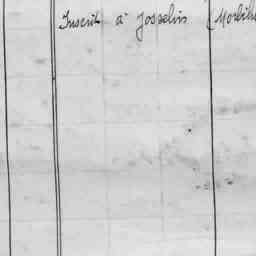 Inscrit à Josselin (Morbiha